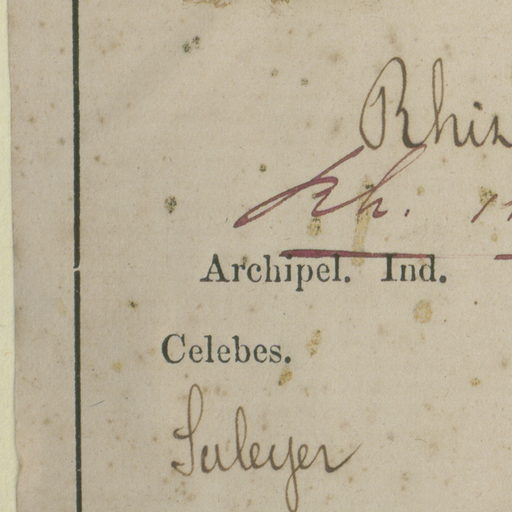 Rhiz
Rh.
Archipel. Ind.
Celebes.
Saleyer